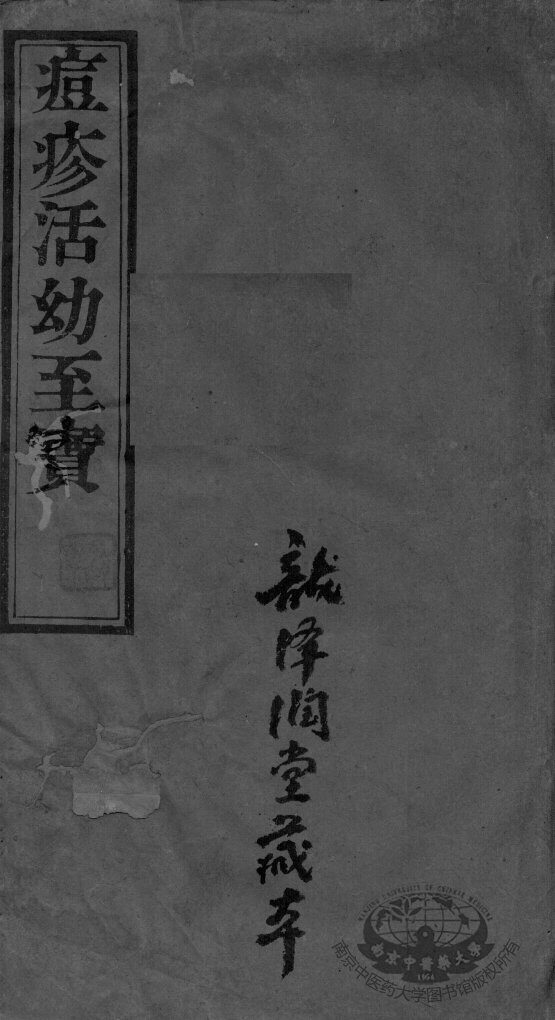 痘疹活幼至寶
澤潤堂藏本
NANJING UNIVERSITY OF CHINESE MEDICINE
南京中醫藥大學
1954
南京中医药大学图书馆版权所有